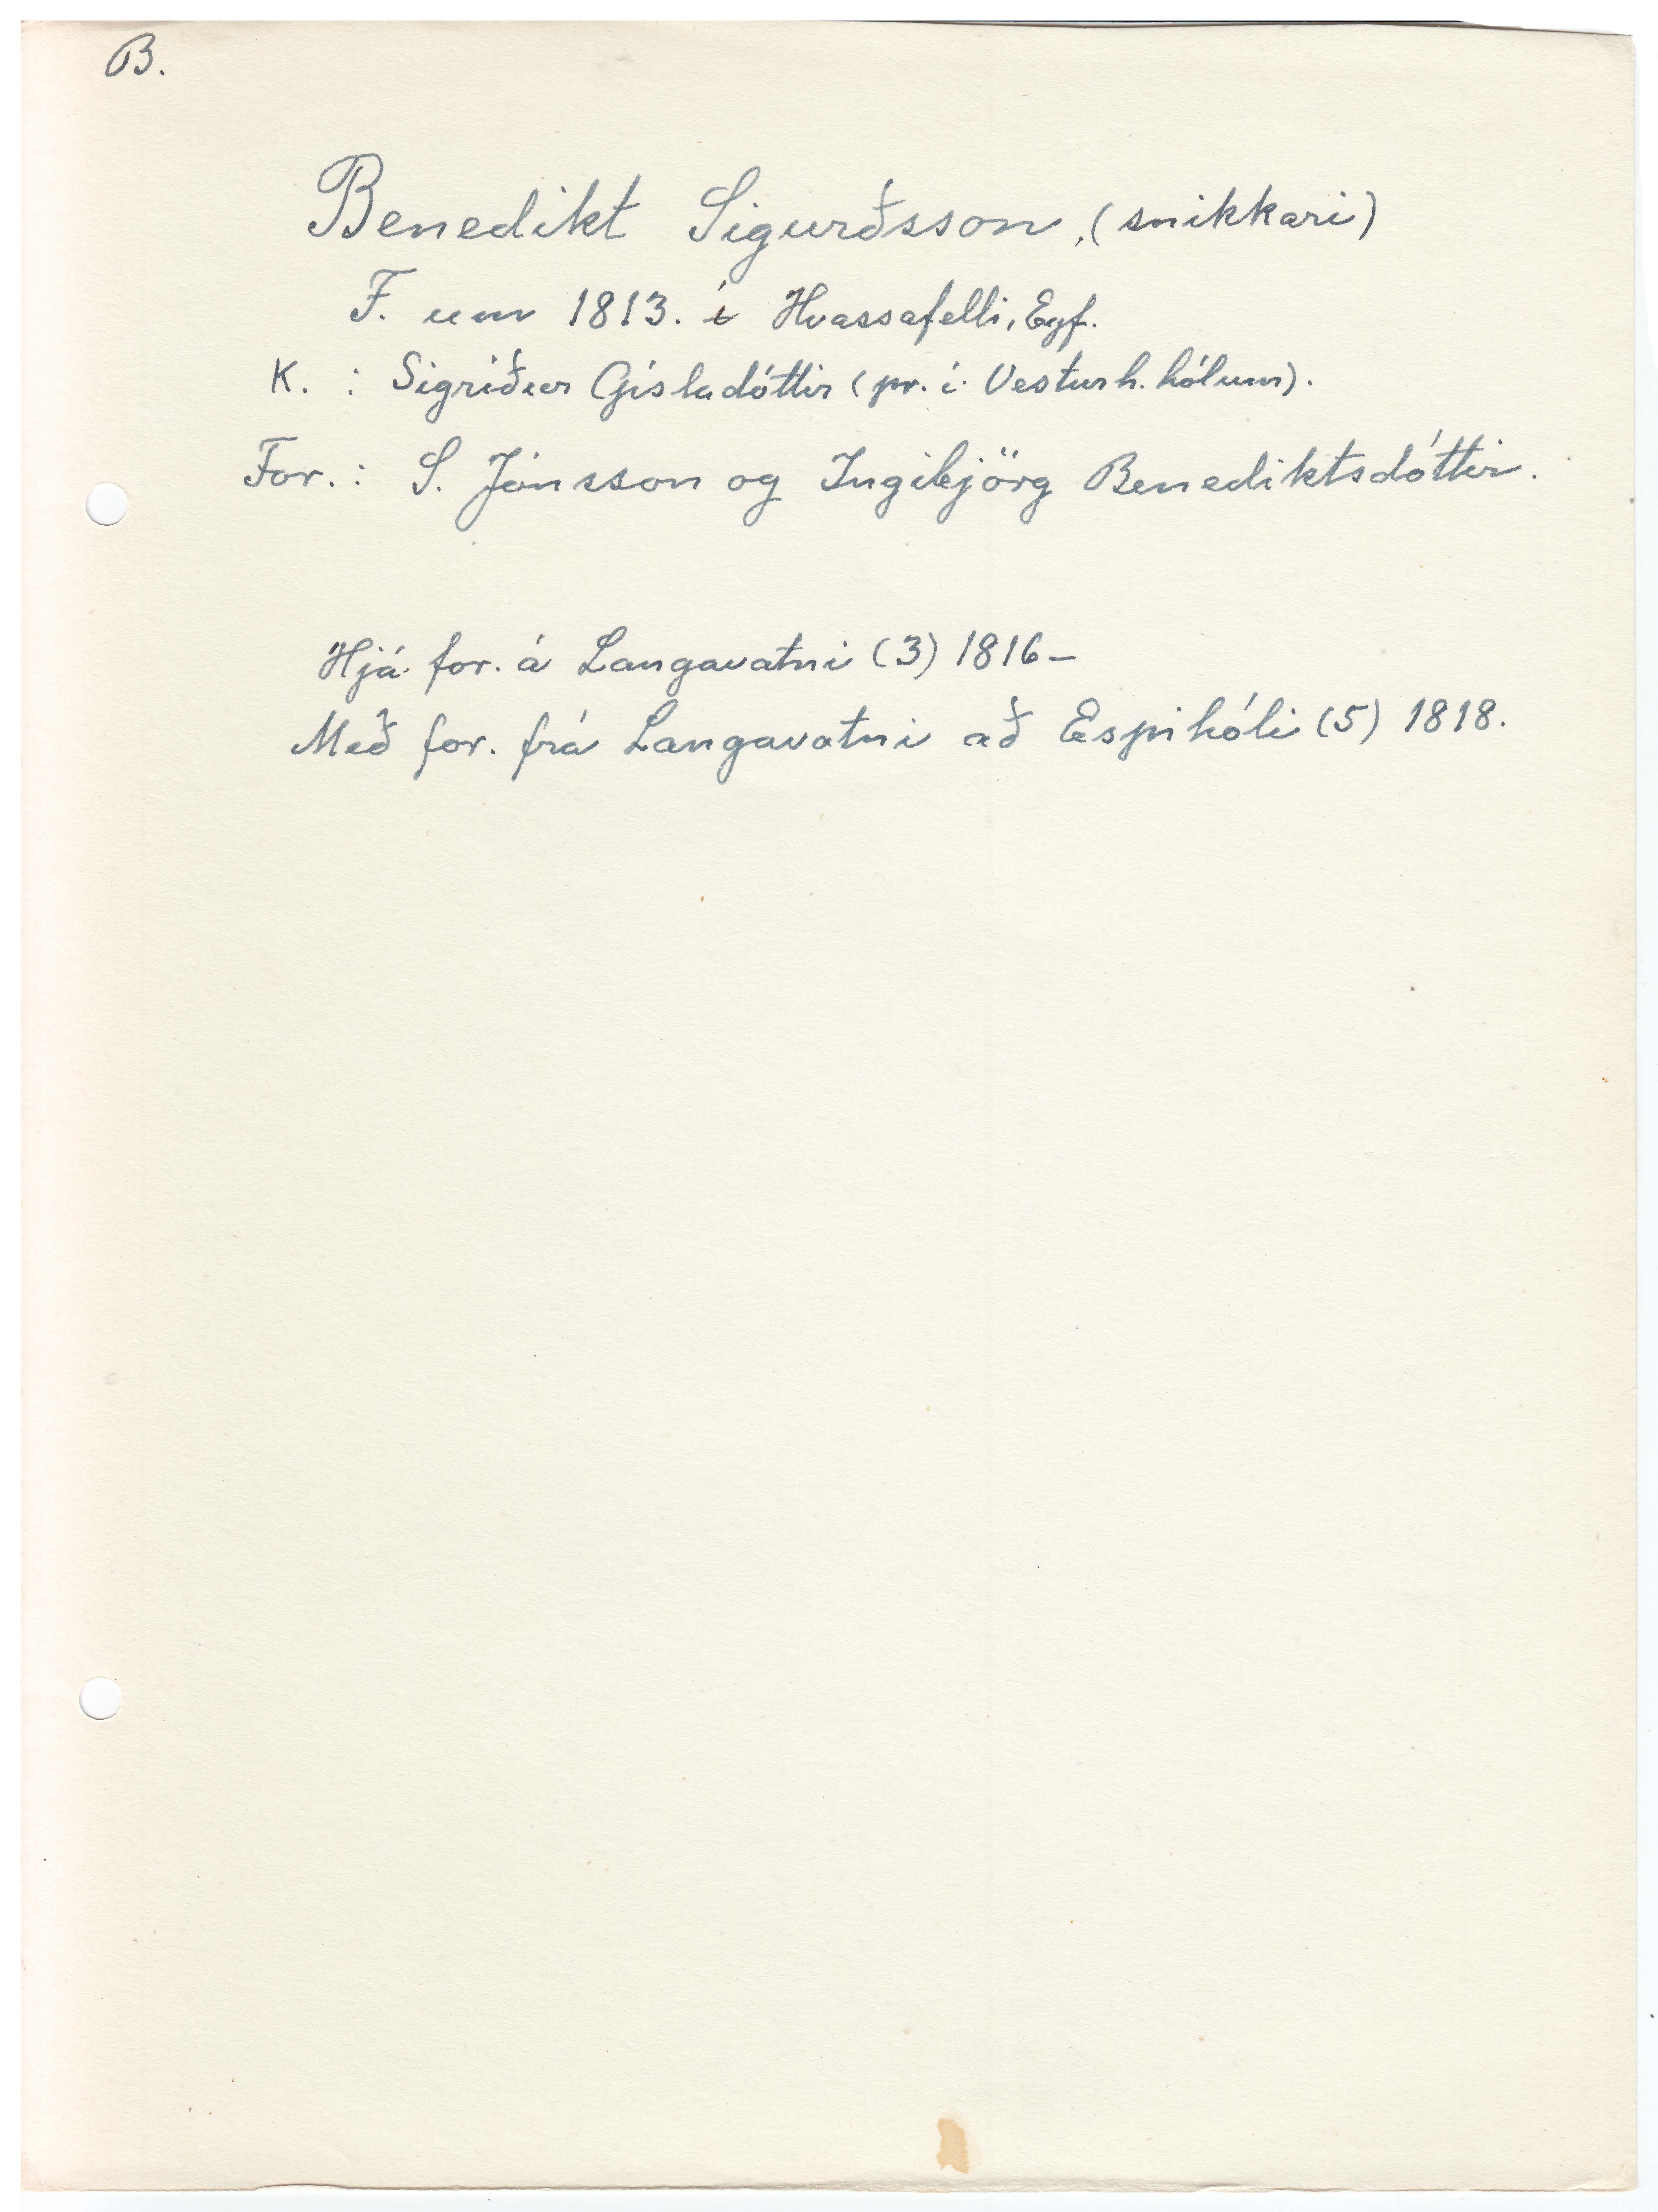 B.
Benedikt Sigurðsson, (snikkari)
F. um 1813. í Hvassafelli, Eyf.
K. : Sigríður Gísladóttir (pr. í Vesturh.hólum).
For. : S. Jónsson og Ingibjörg Benediktsdóttir.
Hjá for. á Langavatni (3) 1816–
Með for. frá Langavatni að Espihóli (5) 1818.